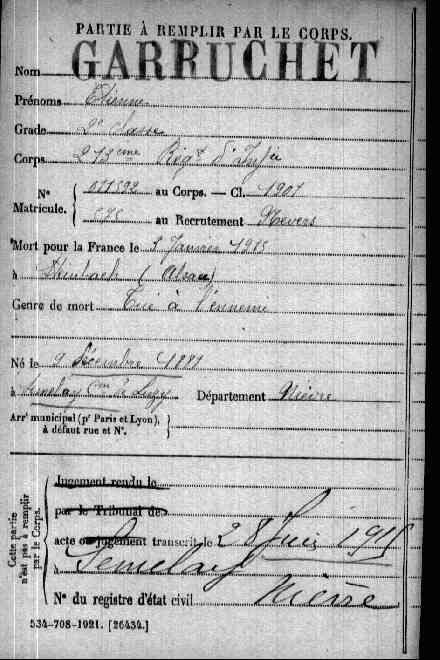 PARTIE À REMPLIR PAR LE CORPS.
Nom GARRUCHET
Prénoms Etienne
Grade 2e Classe
Corps 213ème Régt d'Infie
N° 011592 au Corps. — Cl. 1901
Matricule. 578 au Recrutement Nevers
Mort pour la France le 5 Janvier 1915
à Steinbach (Alsace)
Genre de mort Tué à l'ennemi
Né le 9 Décembre 1881
à Semelay Con de Luzy Département Nièvre
Arrt municipal (pr Paris et Lyon),
à défaut rue et N°.
Cette partie
n'est pas à remplir
par le Corps.
Jugement rendu le
par le Tribunal de
acte ou jugement transcrit le 28 Juin 1915
à Semelay
Nièvre
N° du registre d'état civil
534-708-1921. [26434.]